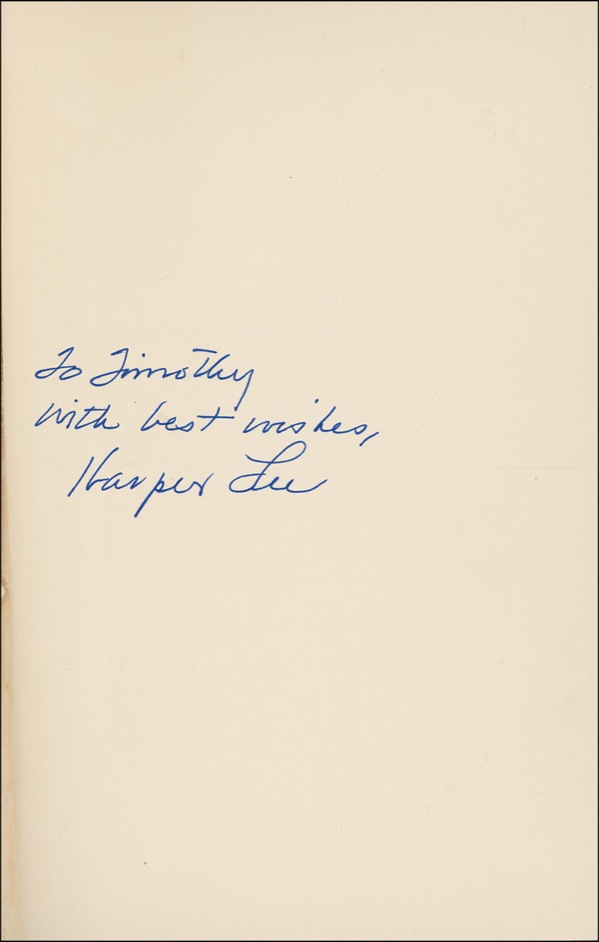 To Timothy
with best wishes,
Harper Lee